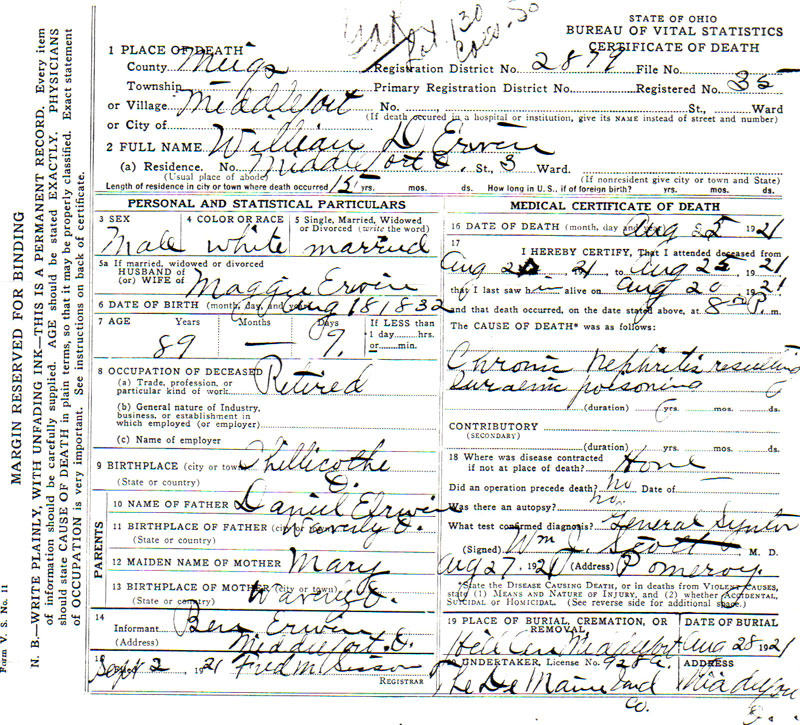 130
STATE OF OHIO
BUREAU OF VITAL STATISTICS
CERTIFICATE OF DEATH
1 PLACE OF DEATH
County Meigs Registration District No. 2879 File No.
Township Primary Registration District No. Registered No. 35
or Village Middleport No. St., Ward
(If death occurred in a hospital or institution, give its NAME instead of street and number)
or City of
2 FULL NAME William D Erwin
(a) Residence. No. Middleport O. St., 3 Ward.
(Usual place of abode) (If nonresident give city or town and State)
Length of residence in city or town where death occurred 15 yrs. mos. ds. How long in U. S., if of foreign birth? yrs. mos. ds.
PERSONAL AND STATISTICAL PARTICULARS
3 SEX 4 COLOR OR RACE 5 Single, Married, Widowed
or Divorced (write the word)
Male white married
5a If married, widowed or divorced
HUSBAND of
(or) WIFE of Maggie Erwin
6 DATE OF BIRTH (month, day, and year) Aug 18, 1832
7 AGE Years Months Days If LESS than
1 day......hrs.
or......min.
89 — 7.
8 OCCUPATION OF DECEASED
(a) Trade, profession, or
particular kind of work Retired
(b) General nature of Industry,
business, or establishment in
which employed (or employer)
(c) Name of employer
9 BIRTHPLACE (city or town) Chillicothe
(State or country) O.
PARENTS
10 NAME OF FATHER Daniel Erwin
11 BIRTHPLACE OF FATHER (city or town) Waverly O.
(State or country)
12 MAIDEN NAME OF MOTHER Mary
13 BIRTHPLACE OF MOTHER (city or town)
(State or country) Waverly O.
14
Informant Ben Erwin
(Address) Middleport. O.
15
Sept 2, 1921 Fred M Sisson
REGISTRAR
MEDICAL CERTIFICATE OF DEATH
16 DATE OF DEATH (month, day and year) Aug 25 1921
17
I HEREBY CERTIFY, That I attended deceased from
Aug 21, to Aug 25, 1921
that I last saw him alive on Aug 20, 1921
and that death occurred, on the date stated above, at 8 P. m.
The CAUSE OF DEATH* was as follows:
Chronic Nephritis resulting
poisoning
(duration) yrs. mos. ds.
CONTRIBUTORY
(SECONDARY)
(duration) yrs. mos. ds.
18 Where was disease contracted
if not at place of death? Home
Did an operation precede death? no Date of
Was there an autopsy? no.
What test confirmed diagnosis? General
(Signed) Wm J. Scott M. D.
Aug 27, 1921 (Address) Pomeroy.
*State the DISEASE CAUSING DEATH, or in deaths from VIOLENT CAUSES,
state (1) MEANS AND NATURE OF INJURY, and (2) whether ACCIDENTAL,
SUICIDAL or HOMICIDAL. (See reverse side for additional space.)
19 PLACE OF BURIAL, CREMATION, OR
REMOVAL DATE OF BURIAL
Hill Cem Middleport Aug 28 1921
20 UNDERTAKER, License No. 928 ADDRESS
The De Maine Co. Middleport
O.
MARGIN RESERVED FOR BINDING
N. B.—WRITE PLAINLY, WITH UNFADING INK—THIS IS A PERMANENT RECORD. Every item
of information should be carefully supplied. AGE should be stated EXACTLY. PHYSICIANS
should state CAUSE OF DEATH in plain terms, so that it may be properly classified. Exact statement
of OCCUPATION is very important. See instructions on back of certificate.
Form V. S. No. 11